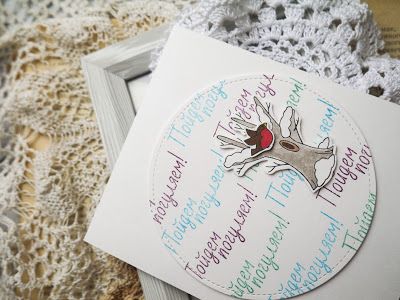 Пойдем
погуляем!
Пойдем
погул
Пойдем
погуляем!
Пойдем
погуляем!
Пойдем
погуляем!
Пойдем
погуляем!
Пойдем
погу
Пойдем